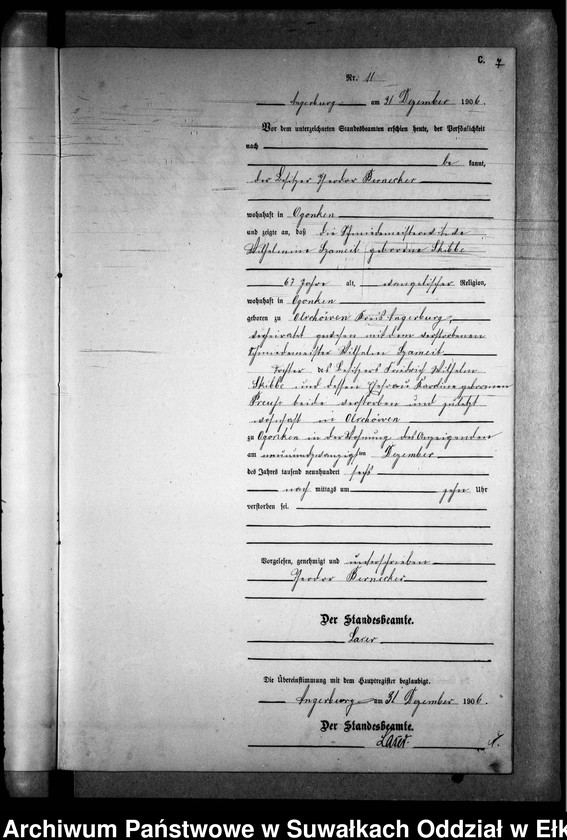 C. 7
Nr. 11
Angerburg am 31 Dezember 1906.
Vor dem unterzeichneten Standesbeamten erschien heute, der Persönlichkeit
nach
be kannt,
der Besitzer Theodor Bernecker
wohnhaft in Ogonken
und zeigte an, daß die Schmiedemeisterwittwe
Wilhelmine Szameit geborene Skibbe
67 Jahre alt, evangelischer Religion,
wohnhaft in Ogonken
geboren zu Kreis Angerburg,
verheiratet gewesen mit dem verstorbenen
Schmiedemeister Wilhelm Szameit
Tochter des Besitzers Friedrich Wilhelm
Skibbe und dessen Ehefrau Karoline geborenen
Preuß beide verstorben und zuletzt
wohnhaft in
zu Ogonken in der Wohnung des Anzeigenden
am neunundzwanzigsten Dezember
des Jahres tausend neunhundert sechs
nach mittags um zehn Uhr
verstorben sei.
Vorgelesen, genehmigt und unterschrieben
Theodor Bernecker.
Der Standesbeamte.
Die Übereinstimmung mit dem Hauptregister beglaubigt.
Angerburg am 31 Dezember 1906.
Der Standesbeamte.
Archiwum Państwowe w Suwałkach Oddział w Ełk